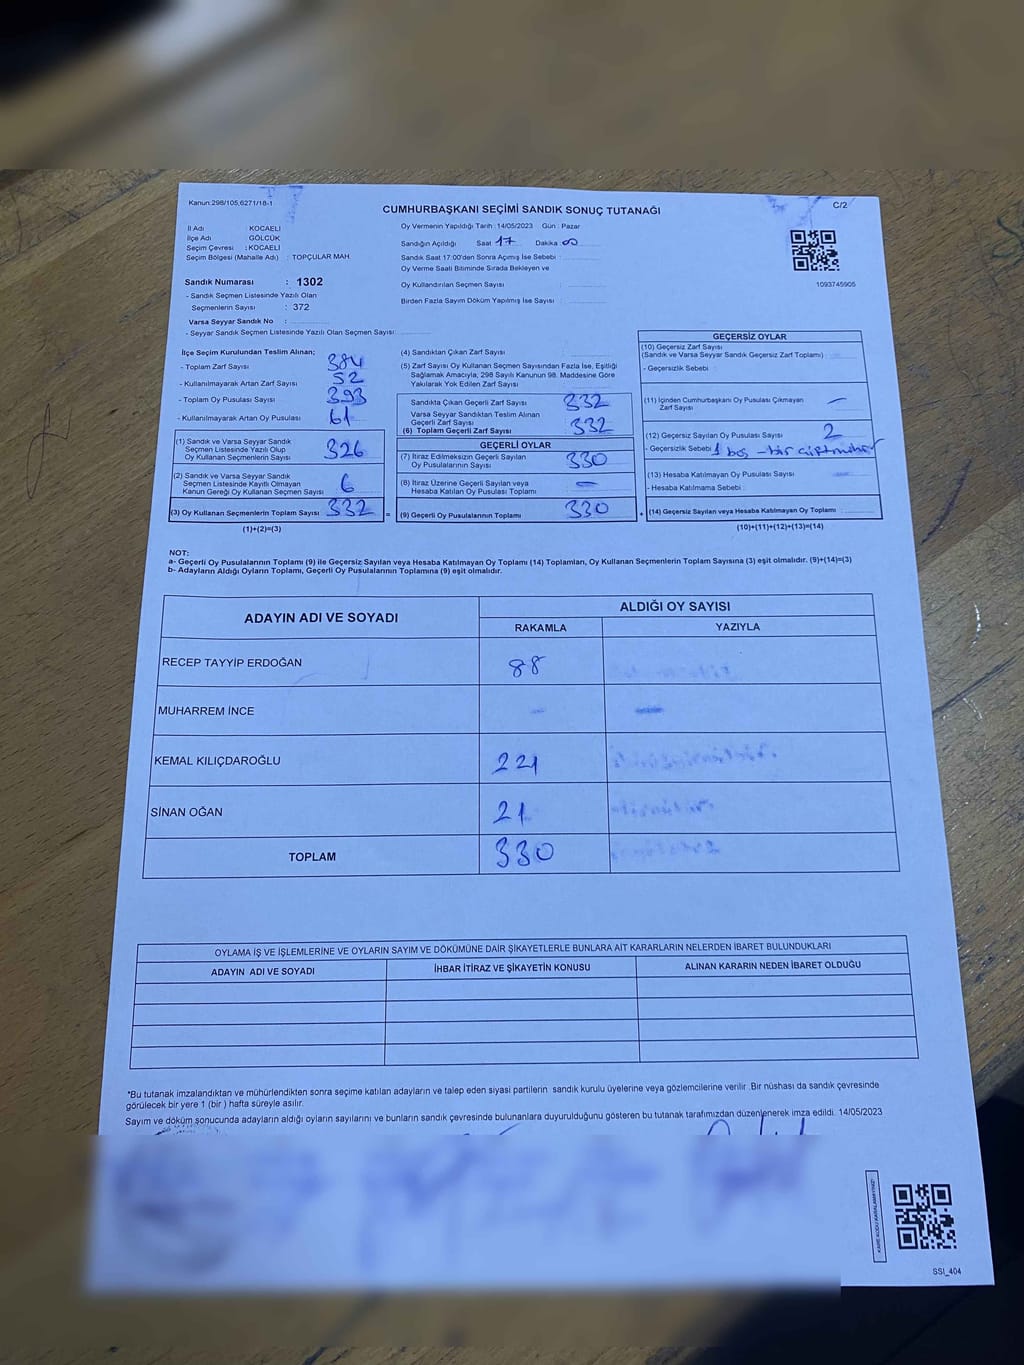 Kanun:298/105,6271/18-1
C/2
CUMHURBAŞKANI SEÇİMİ SANDIK SONUÇ TUTANAĞI
İl Adı : KOCAELİ
İlçe Adı : GÖLCÜK
Seçim Çevresi : KOCAELİ
Seçim Bölgesi (Mahalle Adı) : TOPÇULAR MAH
Oy Vermenin Yapıldığı Tarih :14/05/2023 Gün : Pazar
Sandığın Açıldığı Saat 17 Dakika
Sandık Saat 17:00'den Sonra Açılmış İse Sebebi :
Oy Verme Saati Bitiminde Sırada Bekleyen ve
Oy Kullandırılan Seçmen Sayısı :
Birden Fazla Sayım Döküm Yapılmış İse Sayısı :
1093745905
Sandık Numarası : 1302
- Sandık Seçmen Listesinde Yazılı Olan
Seçmenlerin Sayısı : 372
Varsa Seyyar Sandık No :
- Seyyar Sandık Seçmen Listesinde Yazılı Olan Seçmen Sayısı:
İlçe Seçim Kurulundan Teslim Alınan;
- Toplam Zarf Sayısı 384
- Kullanılmayarak Artan Zarf Sayısı 52
- Toplam Oy Pusulası Sayısı 393
- Kullanılmayarak Artan Oy Pusulası 61
(1) Sandık ve Varsa Seyyar Sandık
Seçmen Listesinde Yazılı Olup
Oy Kullanan Seçmenlerin Sayısı 326
(2) Sandık ve Varsa Seyyar Sandık
Seçmen Listesinde Kayıtlı Olmayan
Kanun Gereği Oy Kullanan Seçmen Sayısı 6
(3) Oy Kullanan Seçmenlerin Toplam Sayısı 332
(1)+(2)=(3)
(4) Sandıktan Çıkan Zarf Sayısı :
(5) Zarf Sayısı Oy Kullanan Seçmen Sayısından Fazla İse, Eşitliği
Sağlamak Amacıyla, 298 Sayılı Kanunun 98. Maddesine Göre
Yakılarak Yok Edilen Zarf Sayısı
Sandıkta Çıkan Geçerli Zarf Sayısı 332
Varsa Seyyar Sandıktan Teslim Alınan
Geçerli Zarf Sayısı
(6) Toplam Geçerli Zarf Sayısı 332
GEÇERLİ OYLAR
(7) İtiraz Edilmeksizin Geçerli Sayılan
Oy Pusulalarının Sayısı 330
(8) İtiraz Üzerine Geçerli Sayılan veya
Hesaba Katılan Oy Pusulası Toplamı —
= (9) Geçerli Oy Pusulalarının Toplamı 330
GEÇERSİZ OYLAR
(10) Geçersiz Zarf Sayısı
(Sandık ve Varsa Seyyar Sandık Geçersiz Zarf Toplamı) :
- Geçersizlik Sebebi :
(11) İçinden Cumhurbaşkanı Oy Pusulası Çıkmayan
Zarf Sayısı —
(12) Geçersiz Sayılan Oy Pusulası Sayısı 2
- Geçersizlik Sebebi 1 boş - bir
(13) Hesaba Katılmayan Oy Pusulası Sayısı
- Hesaba Katılmama Sebebi :
+ (14) Geçersiz Sayılan veya Hesaba Katılmayan Oy Toplamı :
(10)+(11)+(12)+(13)=(14)
NOT:
a- Geçerli Oy Pusulalarının Toplamı (9) ile Geçersiz Sayılan veya Hesaba Katılmayan Oy Toplamı (14) Toplamları, Oy Kullanan Seçmenlerin Toplam Sayısına (3) eşit olmalıdır. (9)+(14)=(3)
b- Adayların Aldığı Oyların Toplamı, Geçerli Oy Pusulalarının Toplamına (9) eşit olmalıdır.
ADAYIN ADI VE SOYADI
ALDIĞI OY SAYISI
RAKAMLA YAZIYLA
RECEP TAYYİP ERDOĞAN 88
MUHARREM İNCE — —
KEMAL KILIÇDAROĞLU 221
SİNAN OĞAN 21
TOPLAM 330
OYLAMA İŞ VE İŞLEMLERİNE VE OYLARIN SAYIM VE DÖKÜMÜNE DAİR ŞİKAYETLERLE BUNLARA AİT KARARLARIN NELERDEN İBARET BULUNDUKLARI
ADAYIN ADI VE SOYADI İHBAR İTİRAZ VE ŞİKAYETİN KONUSU ALINAN KARARIN NEDEN İBARET OLDUĞU
*Bu tutanak imzalandıktan ve mühürlendikten sonra seçime katılan adayların ve talep eden siyasi partilerin sandık kurulu üyelerine veya gözlemcilerine verilir .Bir nüshası da sandık çevresinde
görülecek bir yere 1 (bir ) hafta süreyle asılır.
Sayım ve döküm sonucunda adayların aldığı oyların sayılarını ve bunların sandık çevresinde bulunanlara duyurulduğunu gösteren bu tutanak tarafımızdan düzenlenerek imza edildi. 14/05/2023
SSI_404